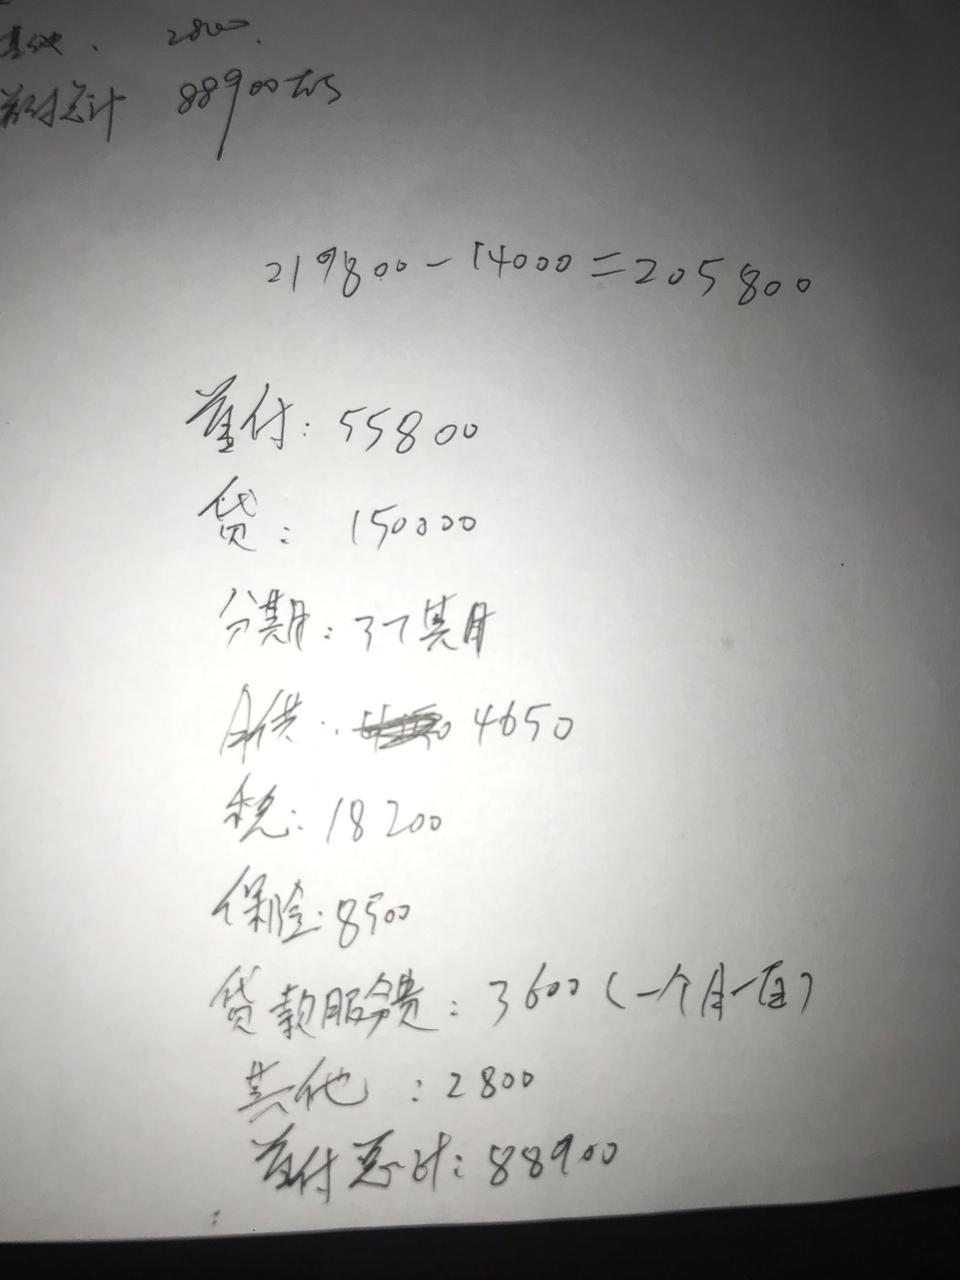 其他、 2800.
首付总计 88900左右
219800-14000=205800
首付: 55800
贷: 150000
分期: 37期月
月供: 4650
税: 18200
保险: 8500
贷款服务费: 3600(一个月一百)
其他: 2800
首付总计: 88900